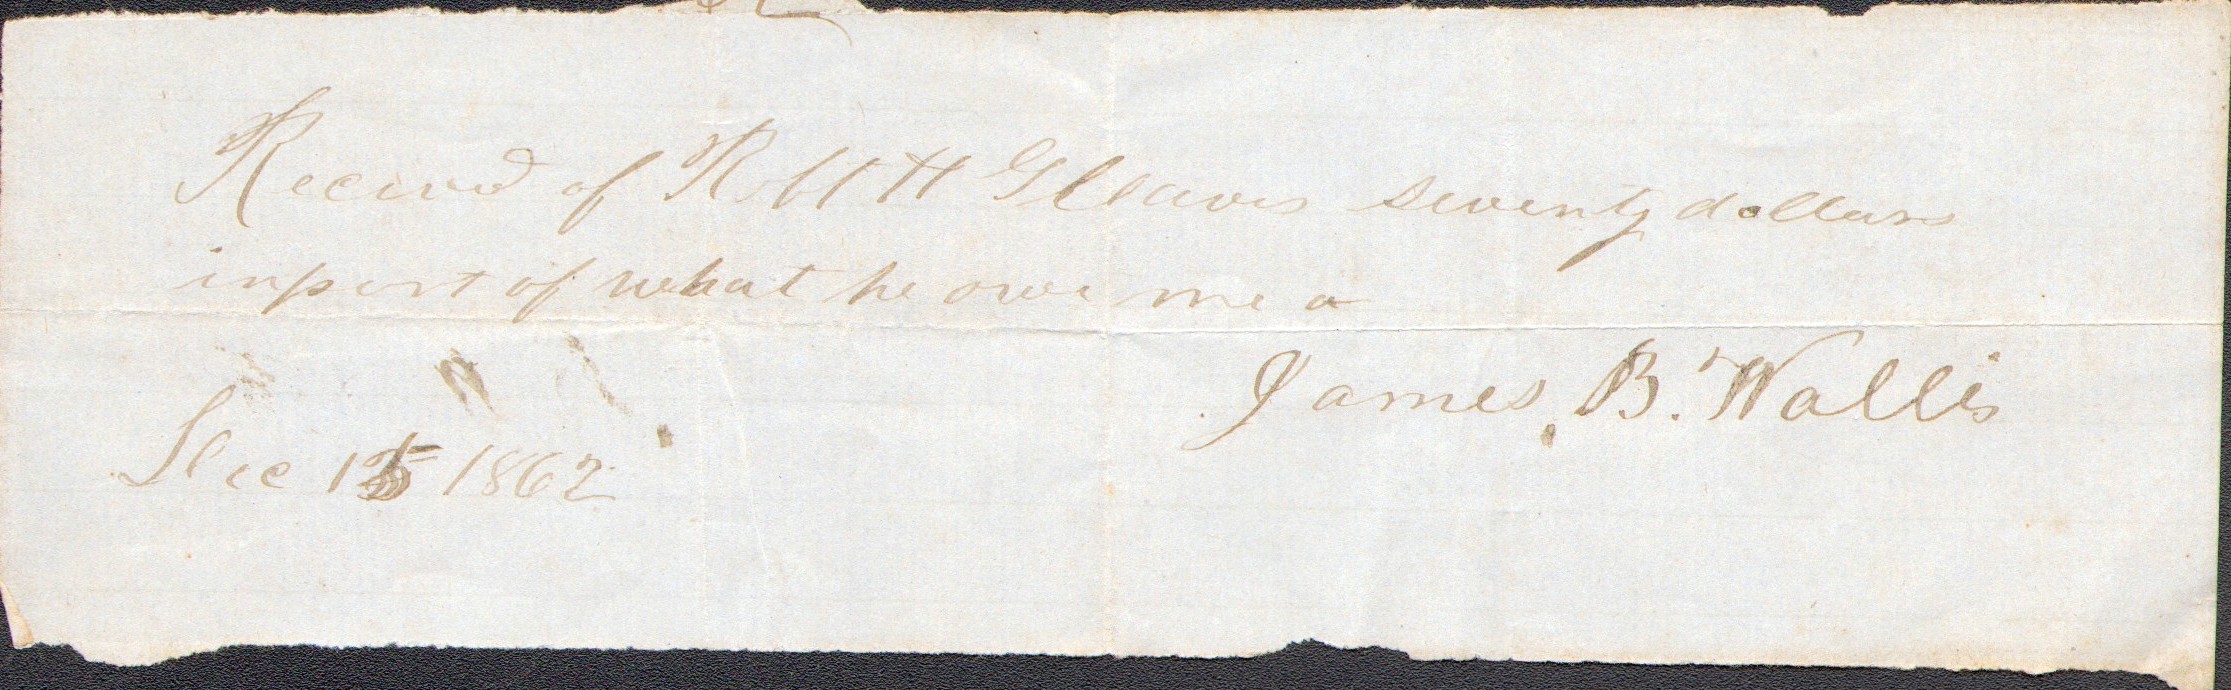 Recived of Robt H Gleaves seventy dollars
in part of what he owe me a
James B. Wallis
Dec 15 1862